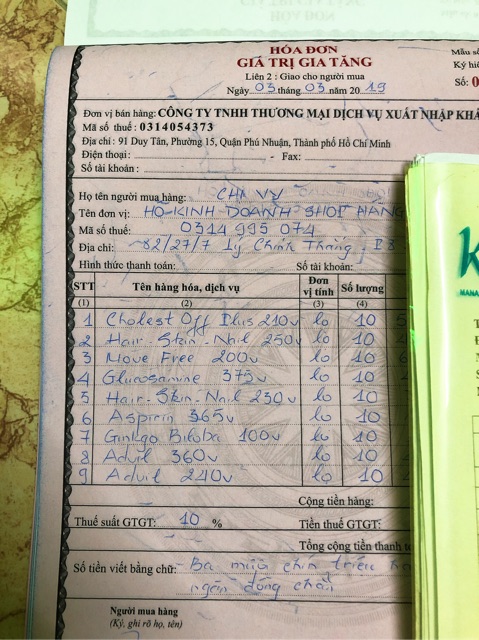 HÓA ĐƠN
GIÁ TRỊ GIA TĂNG
Liên 2 : Giao cho người mua
Ngày 03 tháng 03 năm 2019
Mẫu số
Ký hiệ
Số: 0
Đơn vị bán hàng: CÔNG TY TNHH THƯƠNG MẠI DỊCH VỤ XUẤT NHẬP KHẨ
Mã số thuế : 0314054373
Địa chỉ : 91 Duy Tân, Phường 15, Quận Phú Nhuận, Thành phố Hồ Chí Minh
Điện thoại: Fax:
Số tài khoản:
Họ tên người mua hàng: CHỊ VY
Tên đơn vị: HỘ KINH DOANH SHOP HẰNG
Mã số thuế: 0314995074
Địa chỉ: 82/27/7 Lý Chính Thắng, P8
Hình thức thanh toán: Số tài khoản:
STT Tên hàng hóa, dịch vụ Đơn vị tính Số lượng
(1) (2) (3) (4)
1 Cholest Off Plus 210v lo 10
2 Hair-Skin-Nail 250v lo 10
3 Move Free 200v lo 10
4 Glucosamine 375v lo 10
5 Hair-Skin-Nail 230v lo 10
6 Aspirin 365v lo 10
7 Ginkgo Biloba 100v lo 10
8 Advil 360v lo 10
9 Advil 240v lo 10
Cộng tiền hàng:
Thuế suất GTGT: 10 % Tiền thuế GTGT:
Tổng cộng tiền thanh to
Số tiền viết bằng chữ: Ba mươi chín triệu
ngàn đồng chẵn
Người mua hàng
(Ký, ghi rõ họ, tên)
K
MANA